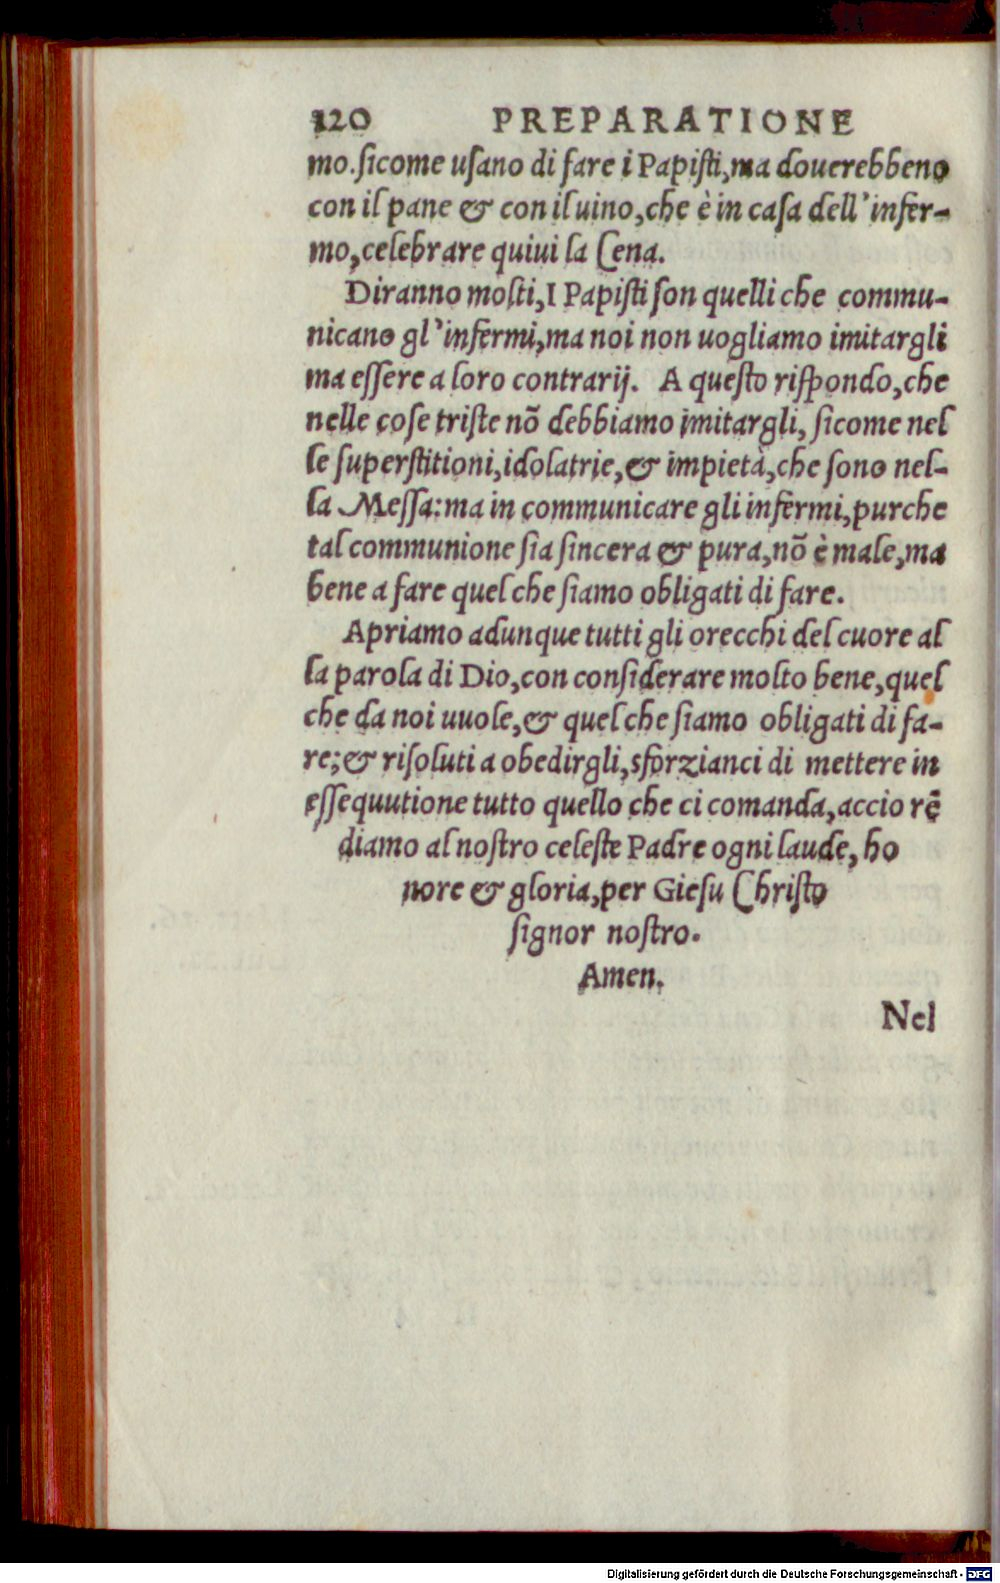 120 PREPARATIONE
mo. ſicome uſano di fare i Papiſti, ma douerebbeno
con il pane & con il uino, che è in caſa dell'infer-
mo, celebrare quiui la Cena.
Diranno molti, I Papiſti ſon quelli che commu-
nicano gl'infermi, ma noi non uogliamo imitargli
ma eſſere a loro contrarij. A queſto riſpondo, che
nelle coſe triſte nõ debbiamo imitargli, ſicome nel
le ſuperſtitioni, idolatrie, & impietà, che ſono nel-
la Meſſa: ma in communicare gli infermi, purche
tal communione ſia ſincera & pura, nõ è male, ma
bene a fare quel che ſiamo obligati di fare.
Apriamo adunque tutti gli orecchi del cuore al
la parola di Dio, con conſiderare molto bene, quel
che da noi uuole, & quel che ſiamo obligati di fa-
re; & riſoluti a obedirgli, sforzianci di mettere in
eſſequutione tutto quello che ci comanda, accio rẽ
diamo al noſtro celeſte Padre ogni laude, ho
nore & gloria, per Gieſu Chriſto
ſignor noſtro.
Amen.
Nel
Digitalisierung gefördert durch die Deutsche Forschungsgemeinschaft - DFG